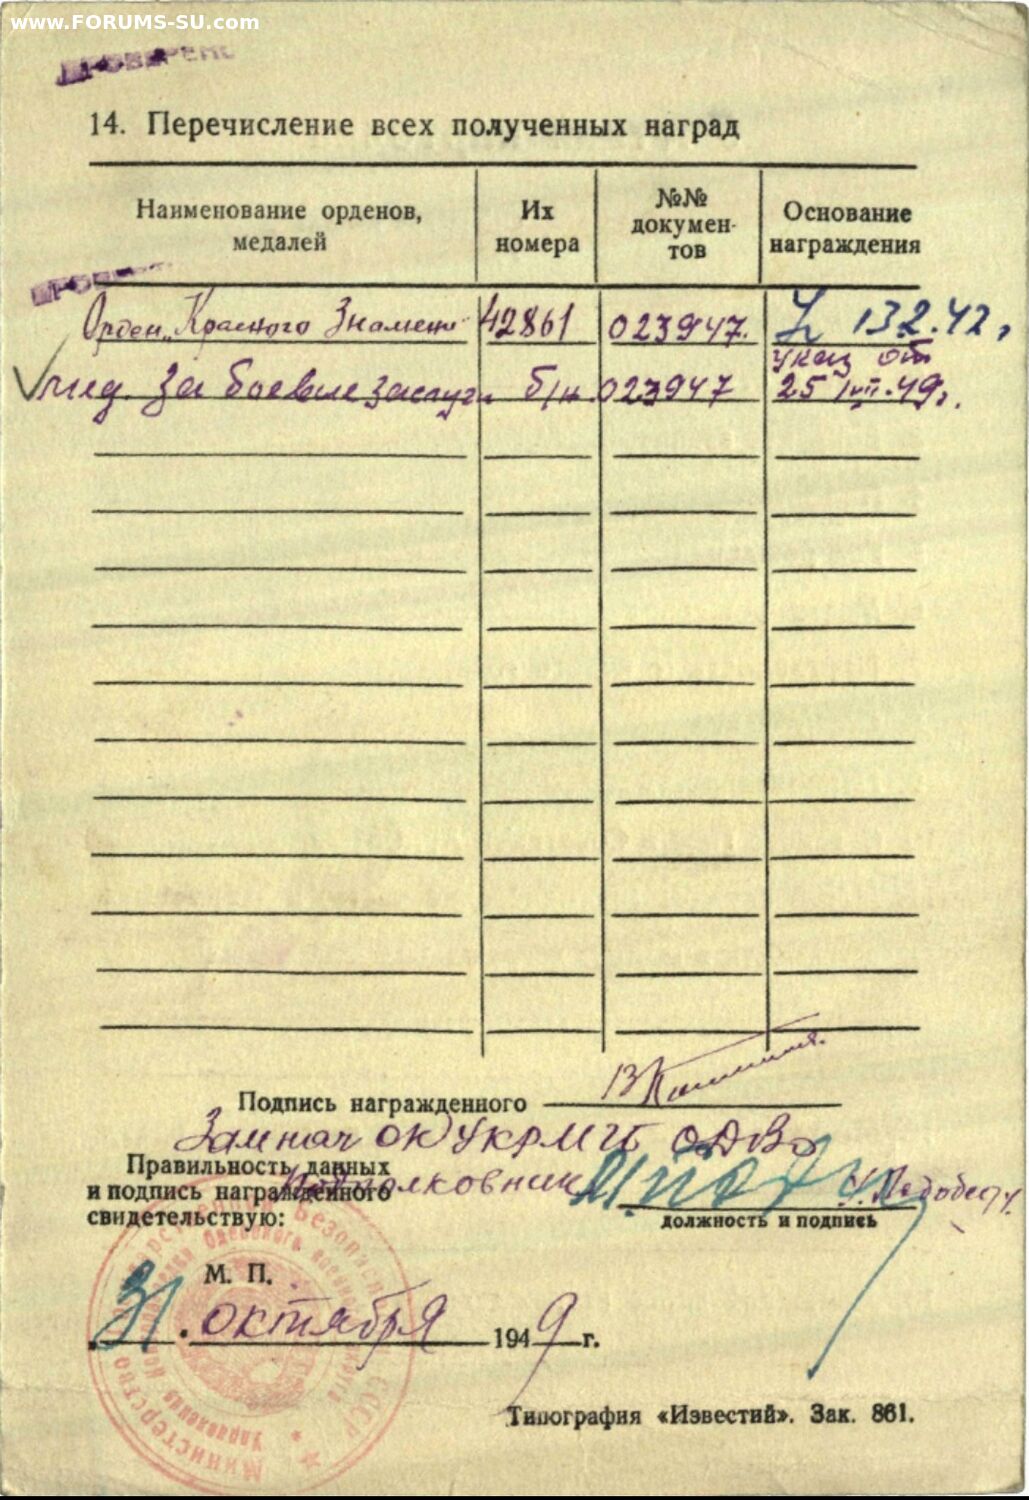 www.FORUMS-SU.com
ПРОВЕРЕНО
14. Перечисление всех полученных наград
Наименование орденов, медалей
Их номера
№№ докумен-тов
Основание награждения
Орден „Красного Знамени" 42861 023947. 13.2.42г
мед. За боевые заслуги б/н 023947 указ от 25 .49г.
Подпись награжденного
Замнач ОК УКР МГБ ОДВО
Правильность данных
и подпись награжденного
подполковник
свидетельствую:
должность и подпись
М. П.
31. октября 1949 г.
Министерство Государственной Безопасности СССР
Управление
Типография «Известий». Зак. 861.